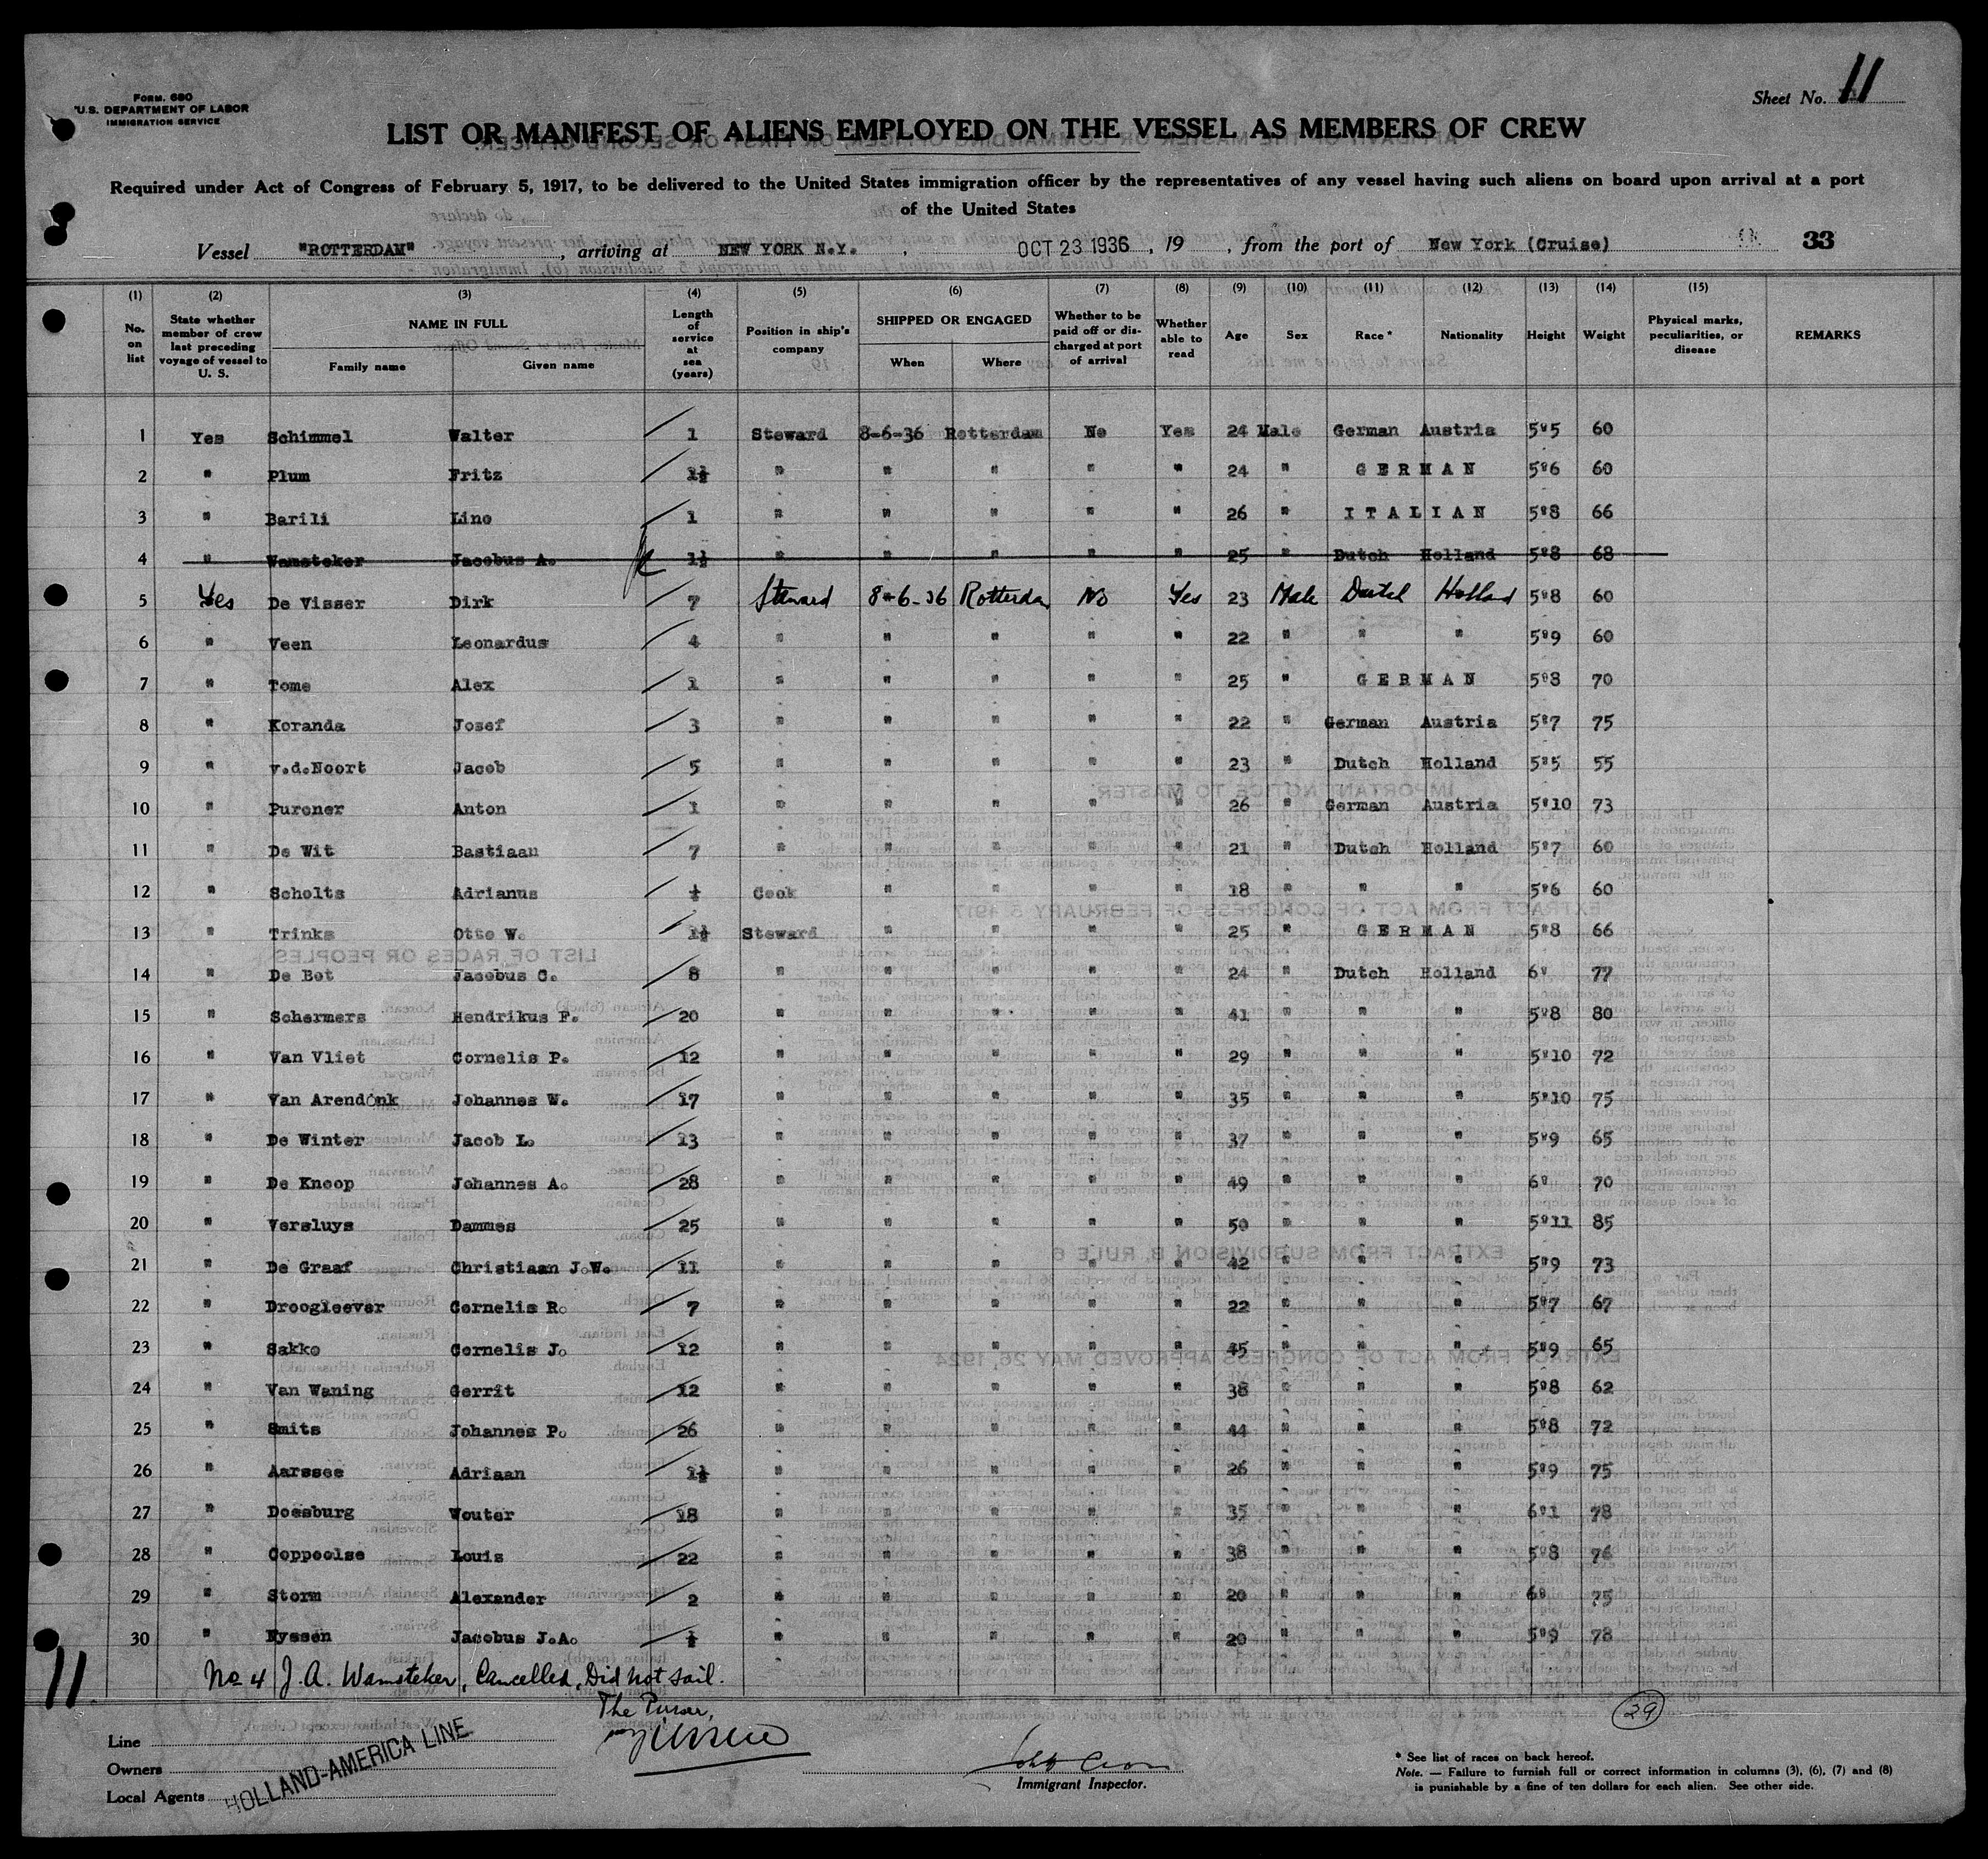 Form. 680
U.S. DEPARTMENT OF LABOR
IMMIGRATION SERVICE
Sheet No. 11
LIST OR MANIFEST OF ALIENS EMPLOYED ON THE VESSEL AS MEMBERS OF CREW
Required under Act of Congress of February 5, 1917, to be delivered to the United States immigration officer by the representatives of any vessel having such aliens on board upon arrival at a port
of the United States
Vessel "ROTTERDAM", arriving at NEW YORK N.Y., OCT 23 1936, 19 , from the port of New York (Cruise) 33
(1) (2) (3) (4) (5) (6) (7) (8) (9) (10) (11) (12) (13) (14) (15)
No. on list State whether member of crew last preceding voyage of vessel to U. S. NAME IN FULL Family name Given name Length of service at sea (years) Position in ship's company SHIPPED OR ENGAGED When Where Whether to be paid off or discharged at port of arrival Whether able to read Age Sex Race* Nationality Height Weight Physical marks, peculiarities, or disease REMARKS
1 Yes Schimmel Walter 1 Steward 8-6-36 Rotterdam No Yes 24 Male German Austria 5"5 60
2 " Plum Fritz 1½ " " " " " 24 " GERMAN 5"6 60
3 " Barili Lino 1 " " " " " 26 " ITALIAN 5"8 66
4 " Wamsteker Jacobus A. 1½ " " " " " 25 " Dutch Holland 5"8 68
5 Yes De Visser Dirk 7 Steward 8-6-36 Rotterdam No Yes 23 Male Dutch Holland 5"8 60
6 " Veen Leonardus 4 " " " " " 22 " " " 5"9 60
7 " Tome Alex 1 " " " " " 25 " GERMAN 5"8 70
8 " Koranda Josef 3 " " " " " 22 " German Austria 5"7 75
9 " v.d.Noort Jacob 5 " " " " " 23 " Dutch Holland 5"5 55
10 " Purener Anton 1 " " " " " 26 " German Austria 5"10 73
11 " De Wit Bastiaan 7 " " " " " 21 " Dutch Holland 5"7 60
12 " Scholts Adrianus ½ Cook " " " " 18 " " " 5"6 60
13 " Trinks Otto W. 1½ Steward " " " " 25 " GERMAN 5"8 66
14 " De Bot Jacobus C. 8 " " " " " 24 " Dutch Holland 6" 77
15 " Schermers Hendrikus F. 20 " " " " " 41 " " " 5"8 80
16 " Van Vliet Cornelis P. 12 " " " " " 29 " " " 5"10 72
17 " Van Arendonk Johannes W. 17 " " " " " 35 " " " 5"10 75
18 " De Winter Jacob L. 13 " " " " " 37 " " " 5"9 65
19 " De Knoop Johannes A. 28 " " " " " 49 " " " 6" 70
20 " Versluys Dammes 25 " " " " " 50 " " " 5"11 85
21 " De Graaf Christiaan J.W. 11 " " " " " 42 " " " 5"9 73
22 " Droogleever Cornelis R. 7 " " " " " 22 " " " 5"7 67
23 " Sakko Cornelis J. 12 " " " " " 45 " " " 5"9 65
24 " Van Waning Gerrit 12 " " " " " 38 " " " 5"8 62
25 " Smits Johannes P. 26 " " " " " 44 " " " 5"8 72
26 " Aarssee Adriaan 1½ " " " " " 26 " " " 5"9 75
27 " Doesburg Wouter 18 " " " " " 35 " " " 6"1 78
28 " Coppoolse Louis 22 " " " " " 38 " " " 5"8 76
29 " Storm Alexander 2 " " " " " 20 " " " 6" 75
30 " Nyssen Jacobus J.A. ½ " " " " " 20 " " " 5"9 78
11 No 4 J. A. Wamsteker, Cancelled, Did not sail.
The Purser,
29
Line
Owners
Local Agents
HOLLAND-AMERICA LINE
Immigrant Inspector.
* See list of races on back hereof.
Note. — Failure to furnish full or correct information in columns (3), (6), (7) and (8)
is punishable by a fine of ten dollars for each alien. See other side.